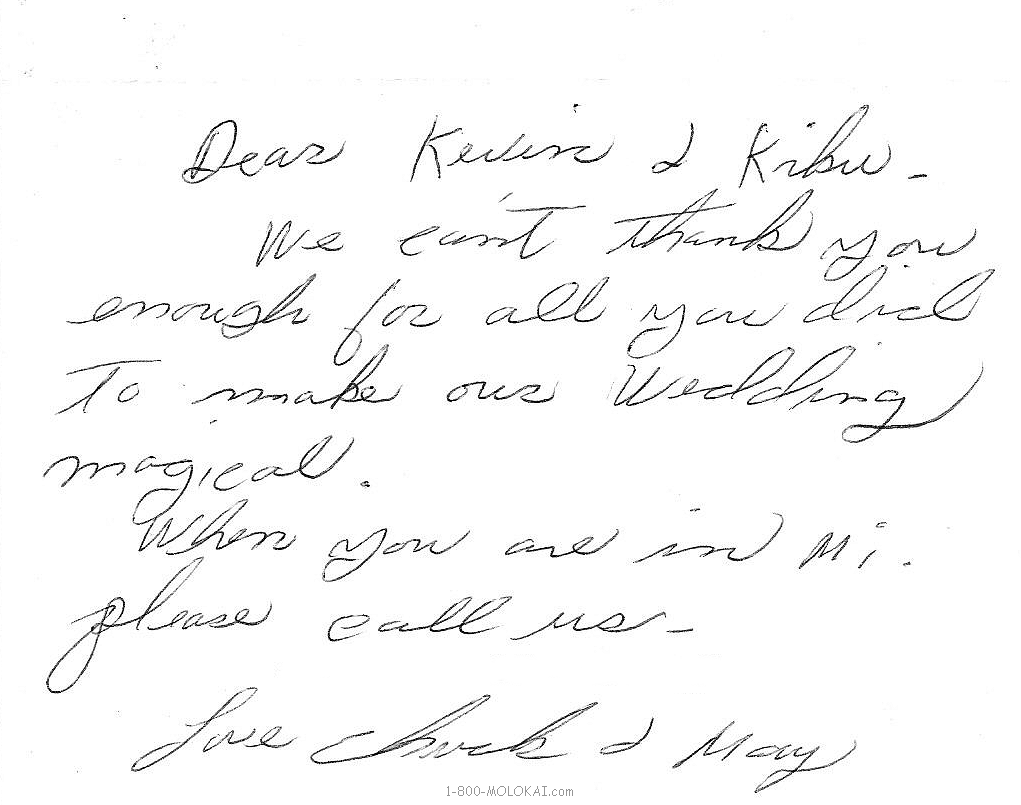 Dear Kevin & Kibu -
We can't thank you
enough for all you did
To make our Wedding
magical.
When you are in Mi.
please call us -
Love Chuck & May
1-800-MOLOKAI.com